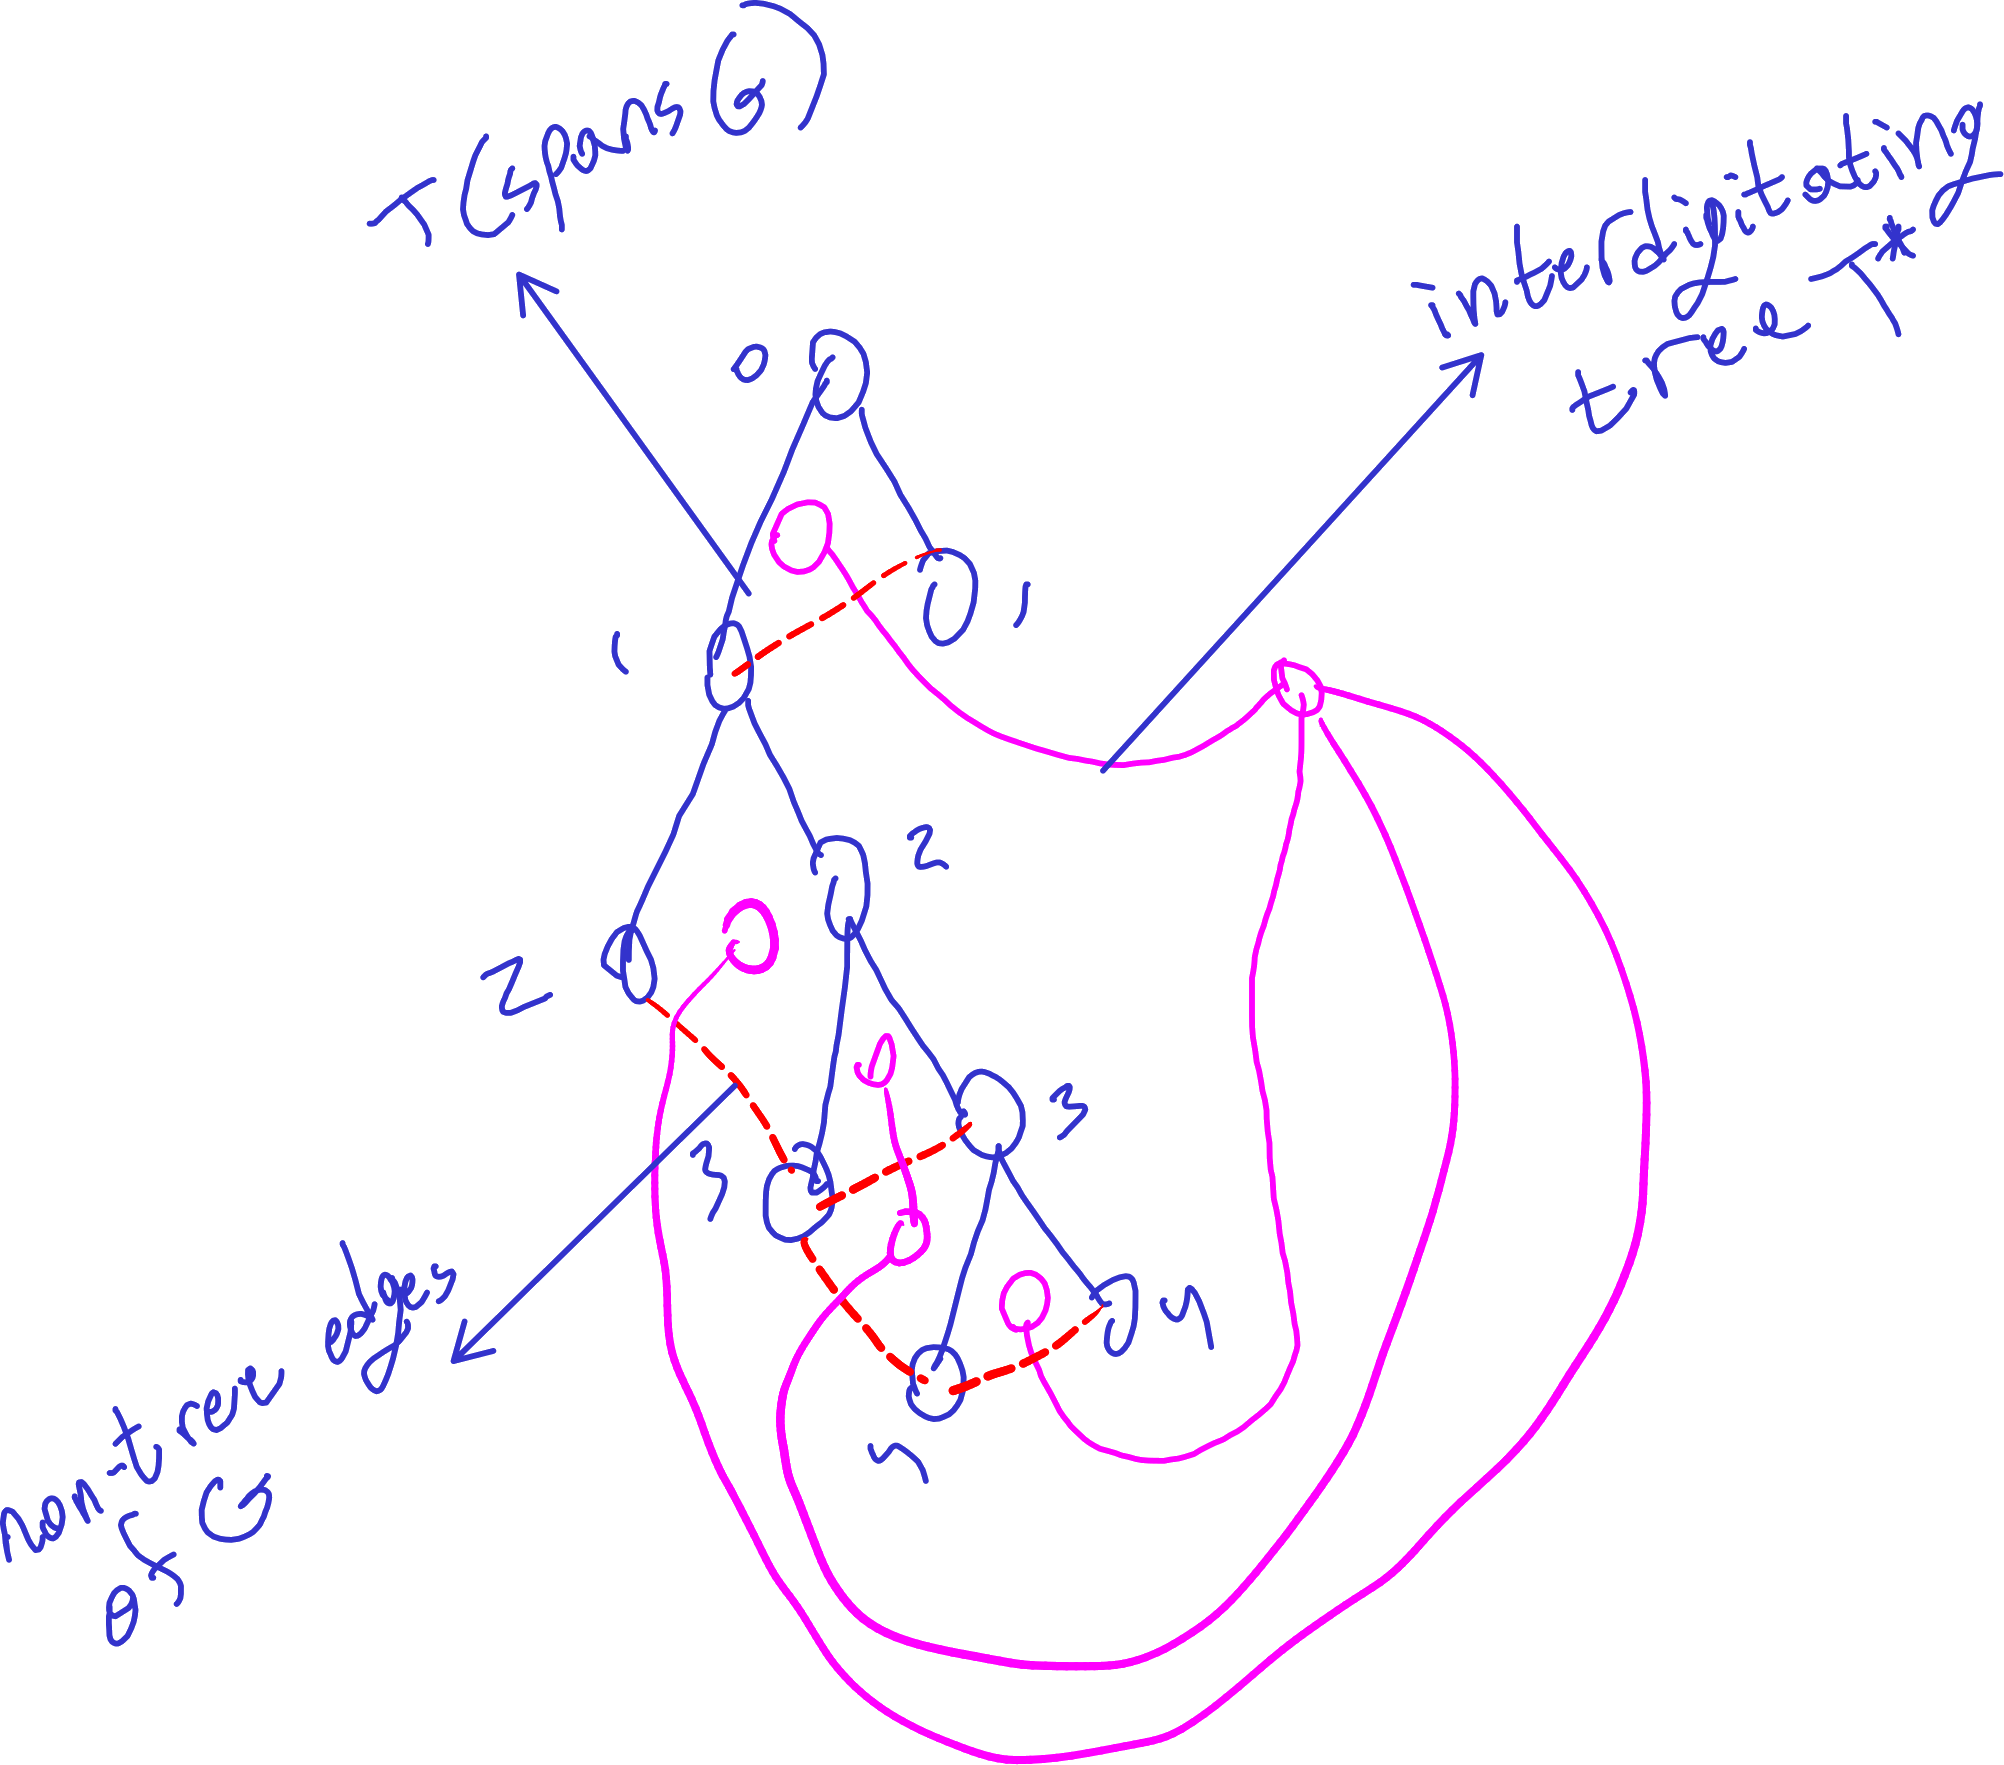 T (spans G)
interdigitating
tree T*
0
1
1
2
2
3
3
4
4
non-tree edges
of G